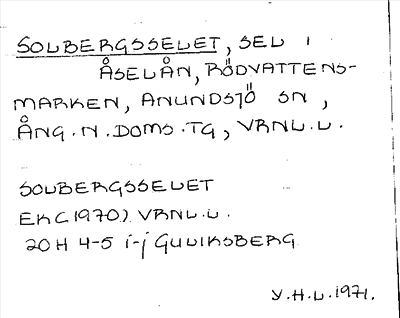 SOLBERGSSELET, SEL I
ÅSELÅN, RÖDVATTENS-
MARKEN, ANUNDSJÖ SN,
ÅNG.N.DOMS.TG, VRNL.L.
SOLBERGSSELET
EK (1970) VRNL.L.
20H 4-5 i-j GULIKSBERG
Y.H.L.1971.